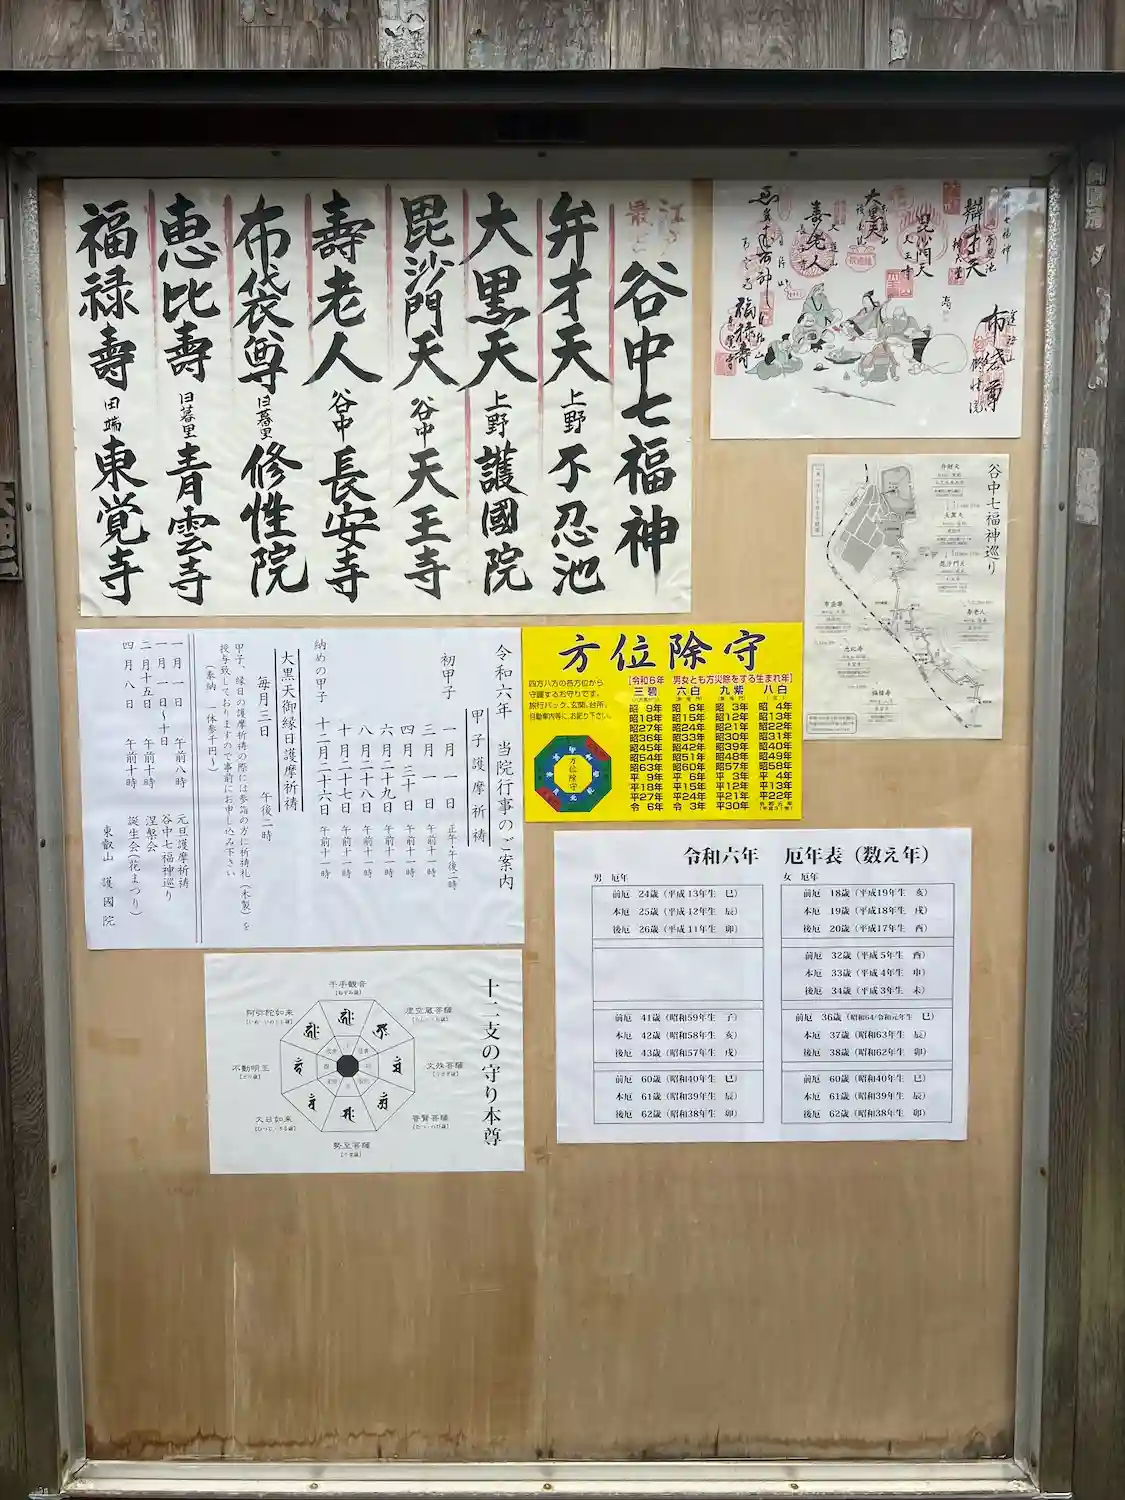 谷中七福神
弁才天 上野 不忍池
大黒天 上野 護國院
毘沙門天 谷中 天王寺
壽老人 谷中 長安寺
布袋尊 日暮里 修性院
恵比壽 日暮里 青雲寺
福禄壽 田端 東覚寺
大黒天
毘沙門天
壽老人
福禄壽
布袋尊
谷中七福神巡り
弁財天
大黒天
毘沙門天
寿老人
恵比寿
福禄寿
令和六年 当院行事のご案内
甲子護摩祈祷
初甲子 一月一日 正午・午後二時
三月一日 午前十一時
四月三十日 午前十一時
六月二十九日 午前十一時
八月二十八日 午前十一時
十月二十七日 午前十一時
納めの甲子 十二月二十六日 午前十一時
大黒天御縁日護摩祈祷
毎月三日 午後二時
甲子、縁日の護摩祈祷の際には参詣の方に祈祷札(木製)を
授与致しておりますので事前にお申し込み下さい
(奉納 一休参千円~)
一月一日 午前八時 元旦護摩祈祷
一月一日~十日 谷中七福神巡り
二月十五日 午前十時 涅槃会
四月八日 午前十時 誕生会(花まつり)
東叡山 護國院
方位除守
四方八方の各方位から
守護するお守りです。
旅行バック、玄関、台所、
自動車内等に、お祀り下さい。
方位除守
[令和6年 男女とも方災除をする生まれ年]
三碧 六白 九紫 八白
昭9年 昭6年 昭3年 昭4年
昭18年 昭15年 昭12年 昭13年
昭27年 昭24年 昭21年 昭22年
昭36年 昭33年 昭30年 昭31年
昭45年 昭42年 昭39年 昭40年
昭54年 昭51年 昭48年 昭49年
昭63年 昭60年 昭57年 昭58年
平9年 平6年 平3年 平4年
平18年 平15年 平12年 平13年
平27年 平24年 平21年 平22年
令6年 令3年 平30年 令和元年
(平成31年)
令和六年 厄年表(数え年)
男 厄年
前厄 24歳(平成13年生 巳)
本厄 25歳(平成12年生 辰)
後厄 26歳(平成11年生 卯)
前厄 41歳(昭和59年生 子)
本厄 42歳(昭和58年生 亥)
後厄 43歳(昭和57年生 戌)
前厄 60歳(昭和40年生 巳)
本厄 61歳(昭和39年生 辰)
後厄 62歳(昭和38年生 卯)
女 厄年
前厄 18歳(平成19年生 亥)
本厄 19歳(平成18年生 戌)
後厄 20歳(平成17年生 酉)
前厄 32歳(平成5年生 酉)
本厄 33歳(平成4年生 申)
後厄 34歳(平成3年生 未)
前厄 36歳(昭和64/令和元年生 巳)
本厄 37歳(昭和63年生 辰)
後厄 38歳(昭和62年生 卯)
前厄 60歳(昭和40年生 巳)
本厄 61歳(昭和39年生 辰)
後厄 62歳(昭和38年生 卯)
十二支の守り本尊
千手観音
虚空蔵菩薩
文殊菩薩
普賢菩薩
勢至菩薩
大日如来
不動明王
阿弥陀如来